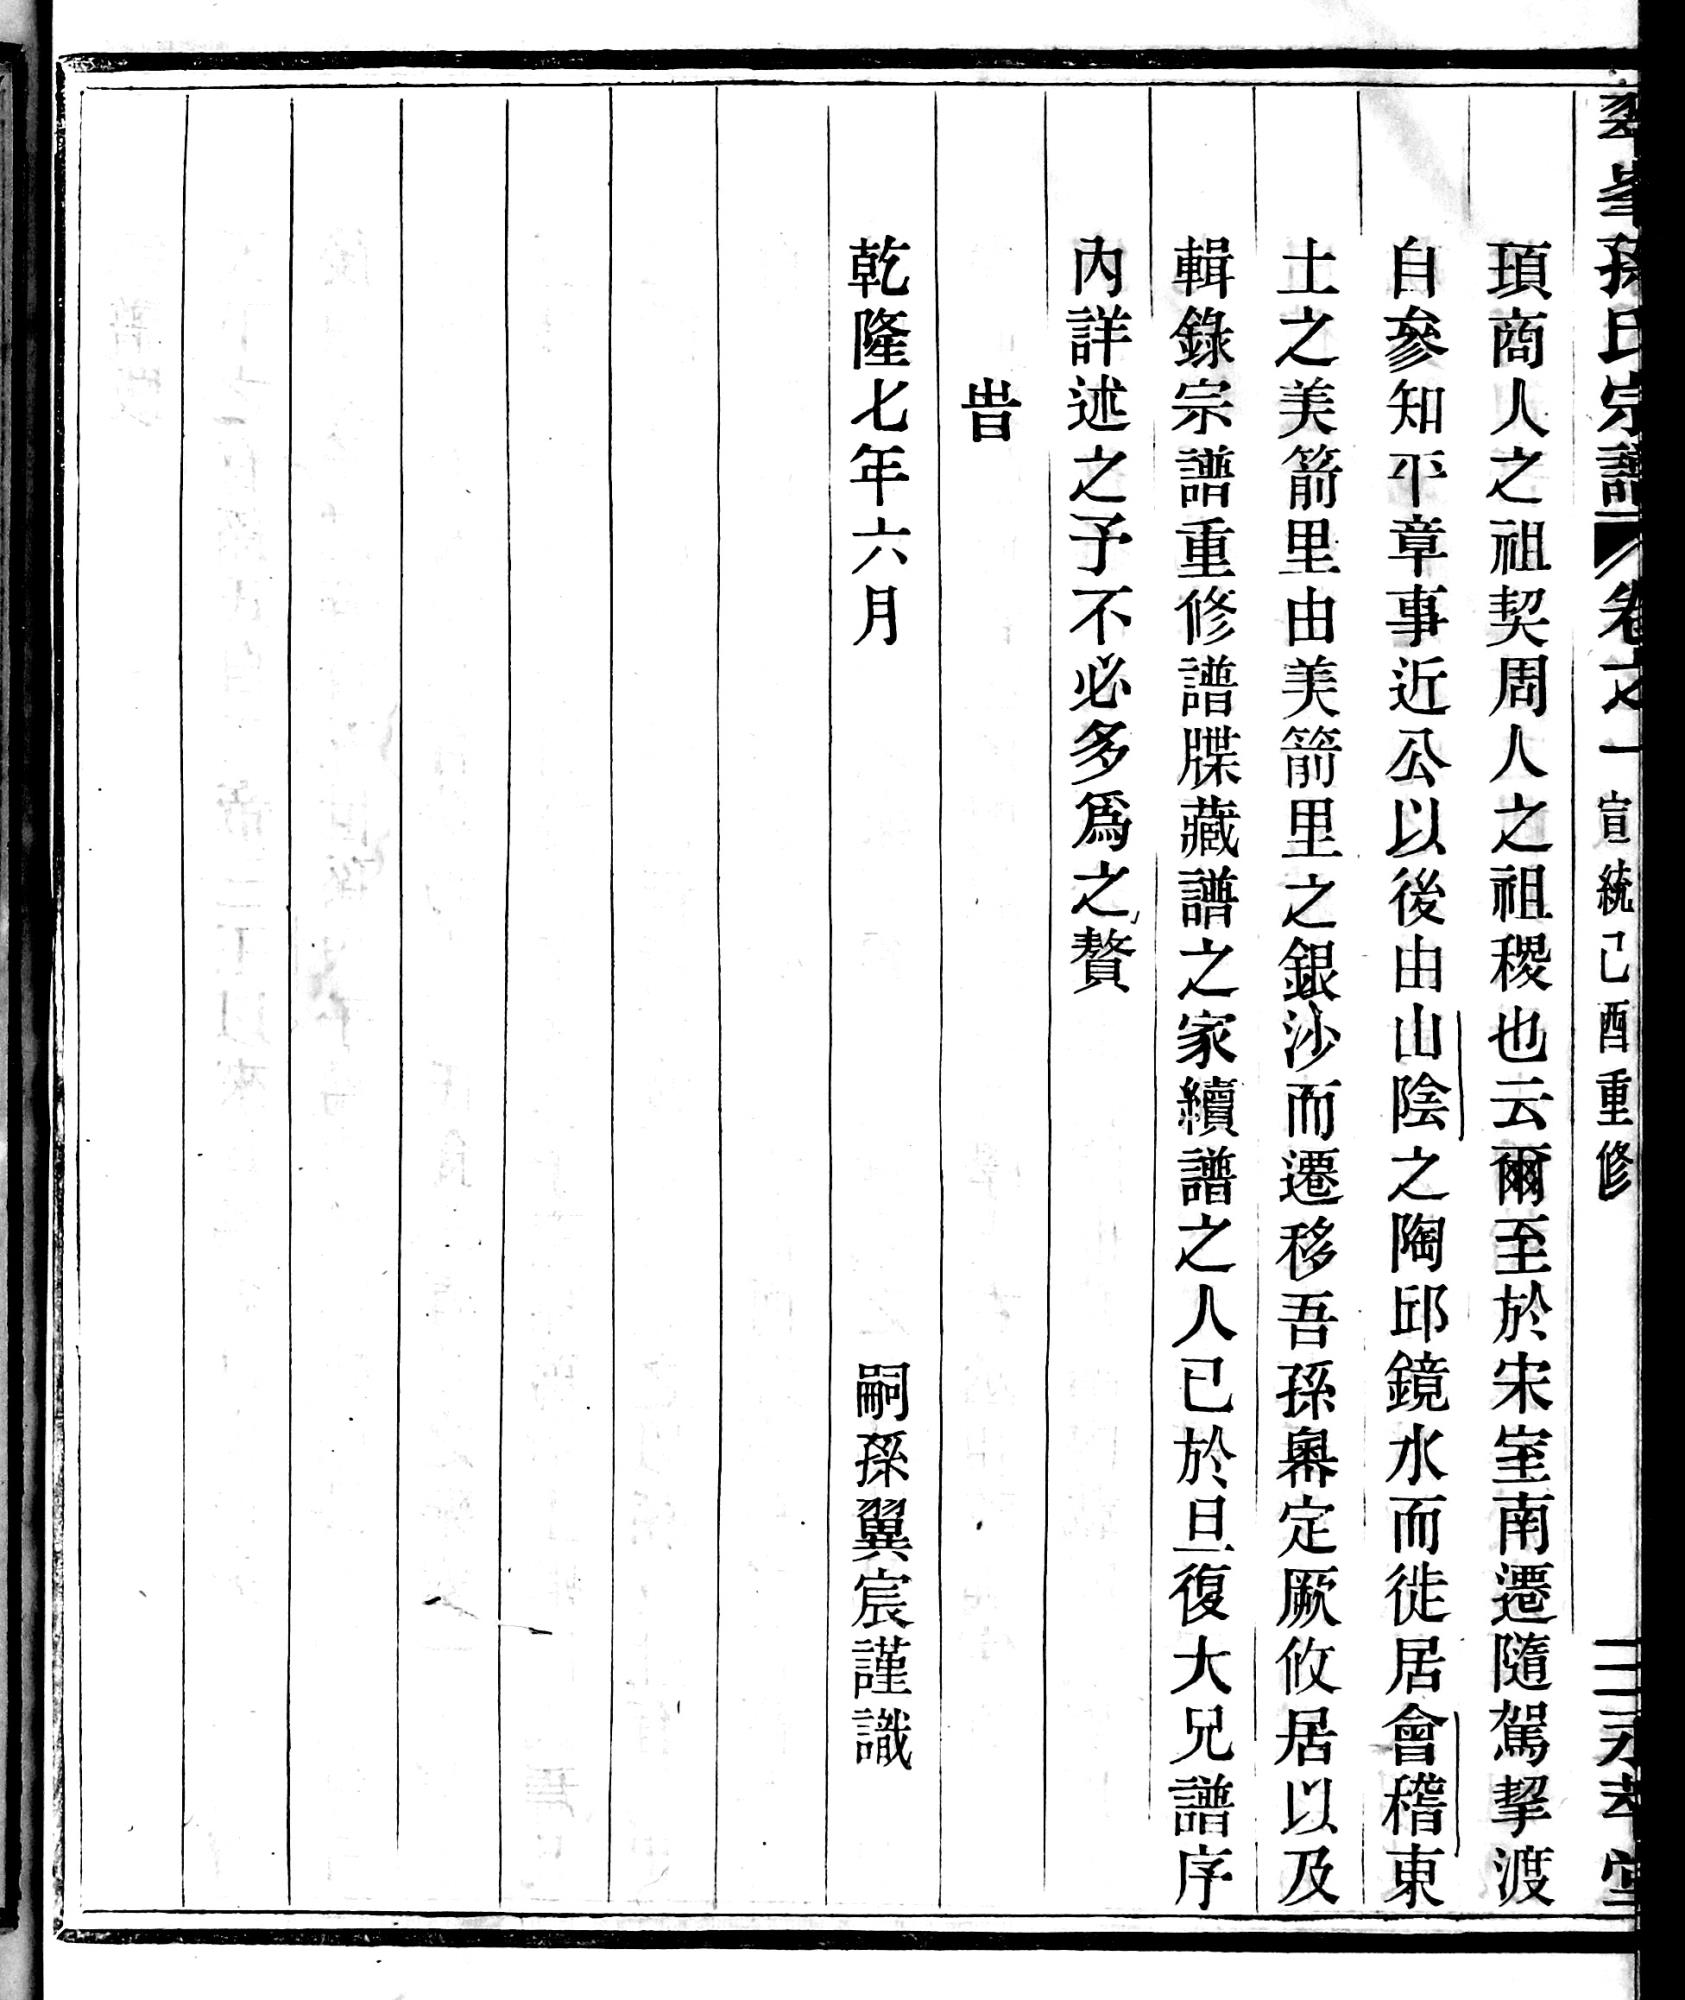 翠峯孫氏宗譜 卷之一 宣統己酉重修 二 永孝堂
頊商人之祖契周人之祖稷也云爾至於宋室南遷隨駕挈渡
自參知平章事近公以後由山陰之陶邱鏡水而徙居會稽東
土之美箭里由美箭里之銀沙而遷移吾孫奧定厥攸居以及
輯錄宗譜重修譜牒藏譜之家續譜之人已於旦復大兄譜序
內詳述之予不必多爲之贅
旹
乾隆七年六月 嗣孫翼宸謹識